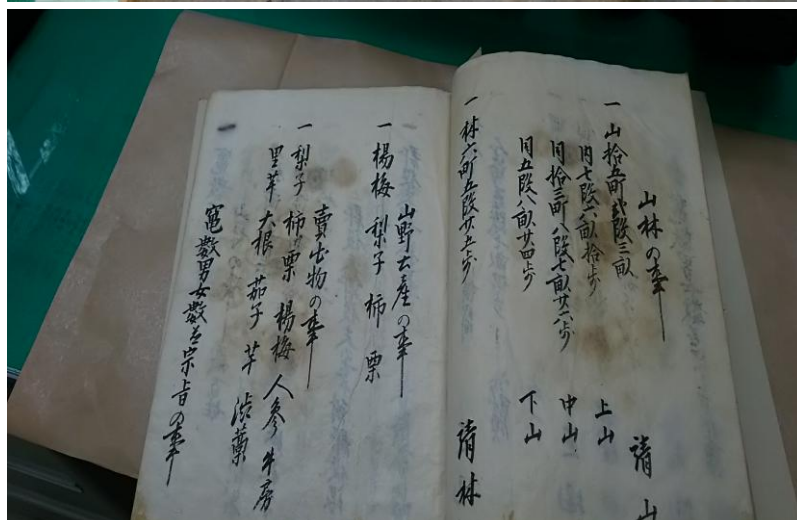 山林の事
一 山拾五町弐段三畝 請山
内七段六畝拾歩 上山
同拾三町八段七畝廿六歩 中山
同五段八畝廿四歩 下山
一 林六町五段廿五歩 請林
山野土産の事
一 楊梅 梨子 柿 栗
賣出物の事
一 梨子 柿 栗 楊梅 人参 牛房
里芋 大根 茄子 芋 渋藁
一 竃数男女数并宗旨の事